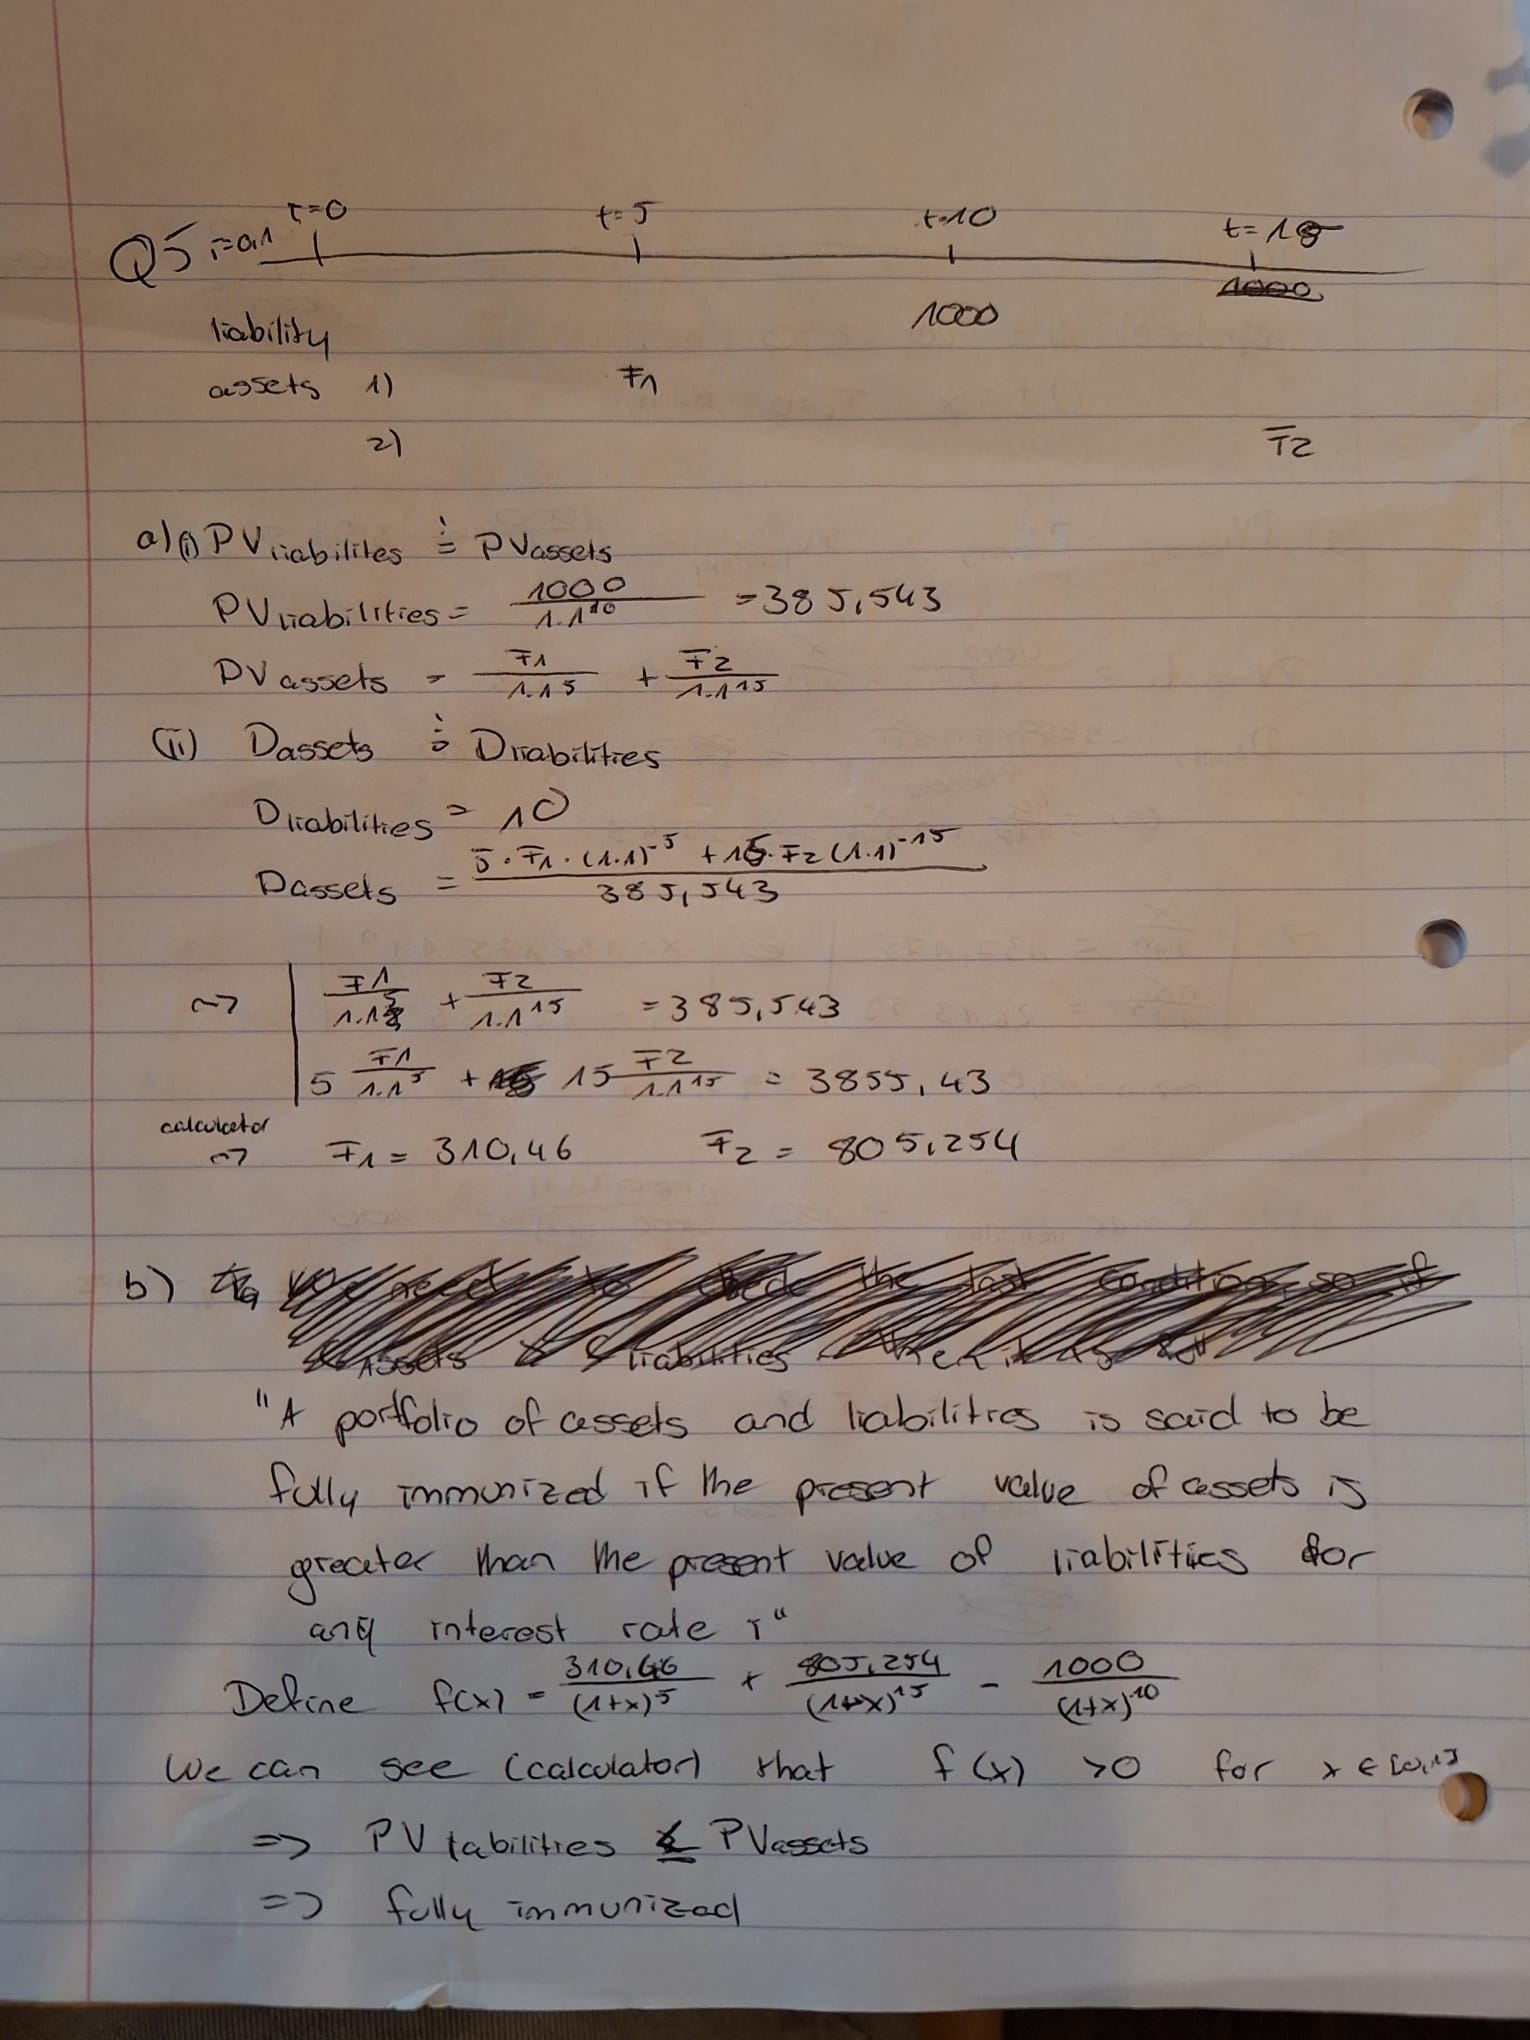 t=0 t=5 t=10 t=15
Q5 i=0,1
1000
liability 1000
assets 1) F1
2) F2
a)(i) PV liabilites = PV assets
PV liabilities = 1000 / 1.1^10 = 385,543
PV assets = F1 / 1.1^5 + F2 / 1.1^15
(ii) Dassets = Dliabilities
Dliabilities = 10
Dassets = 5 · F1 · (1.1)^-5 + 15 · F2 (1.1)^-15 / 385,543
~> F1 / 1.1^5 + F2 / 1.1^15 = 385,543
5 F1 / 1.1^5 + 15 F2 / 1.1^15 = 3855,43
calculator
~> F1 = 310,46 F2 = 805,254
b) We need to check the last condition, so if
Assets liabilities
"A portfolio of assets and liabilities is said to be
fully immunized if the present value of assets is
greater than the present value of liabilities for
any interest rate i"
Define f(x) = 310,46 / (1+x)^5 + 805,254 / (1+x)^15 - 1000 / (1+x)^10
We can see (calculator) that f(x) >0 for x ∈ [0,1]
=> PV labilities ≤ PVassets
=> fully immunized